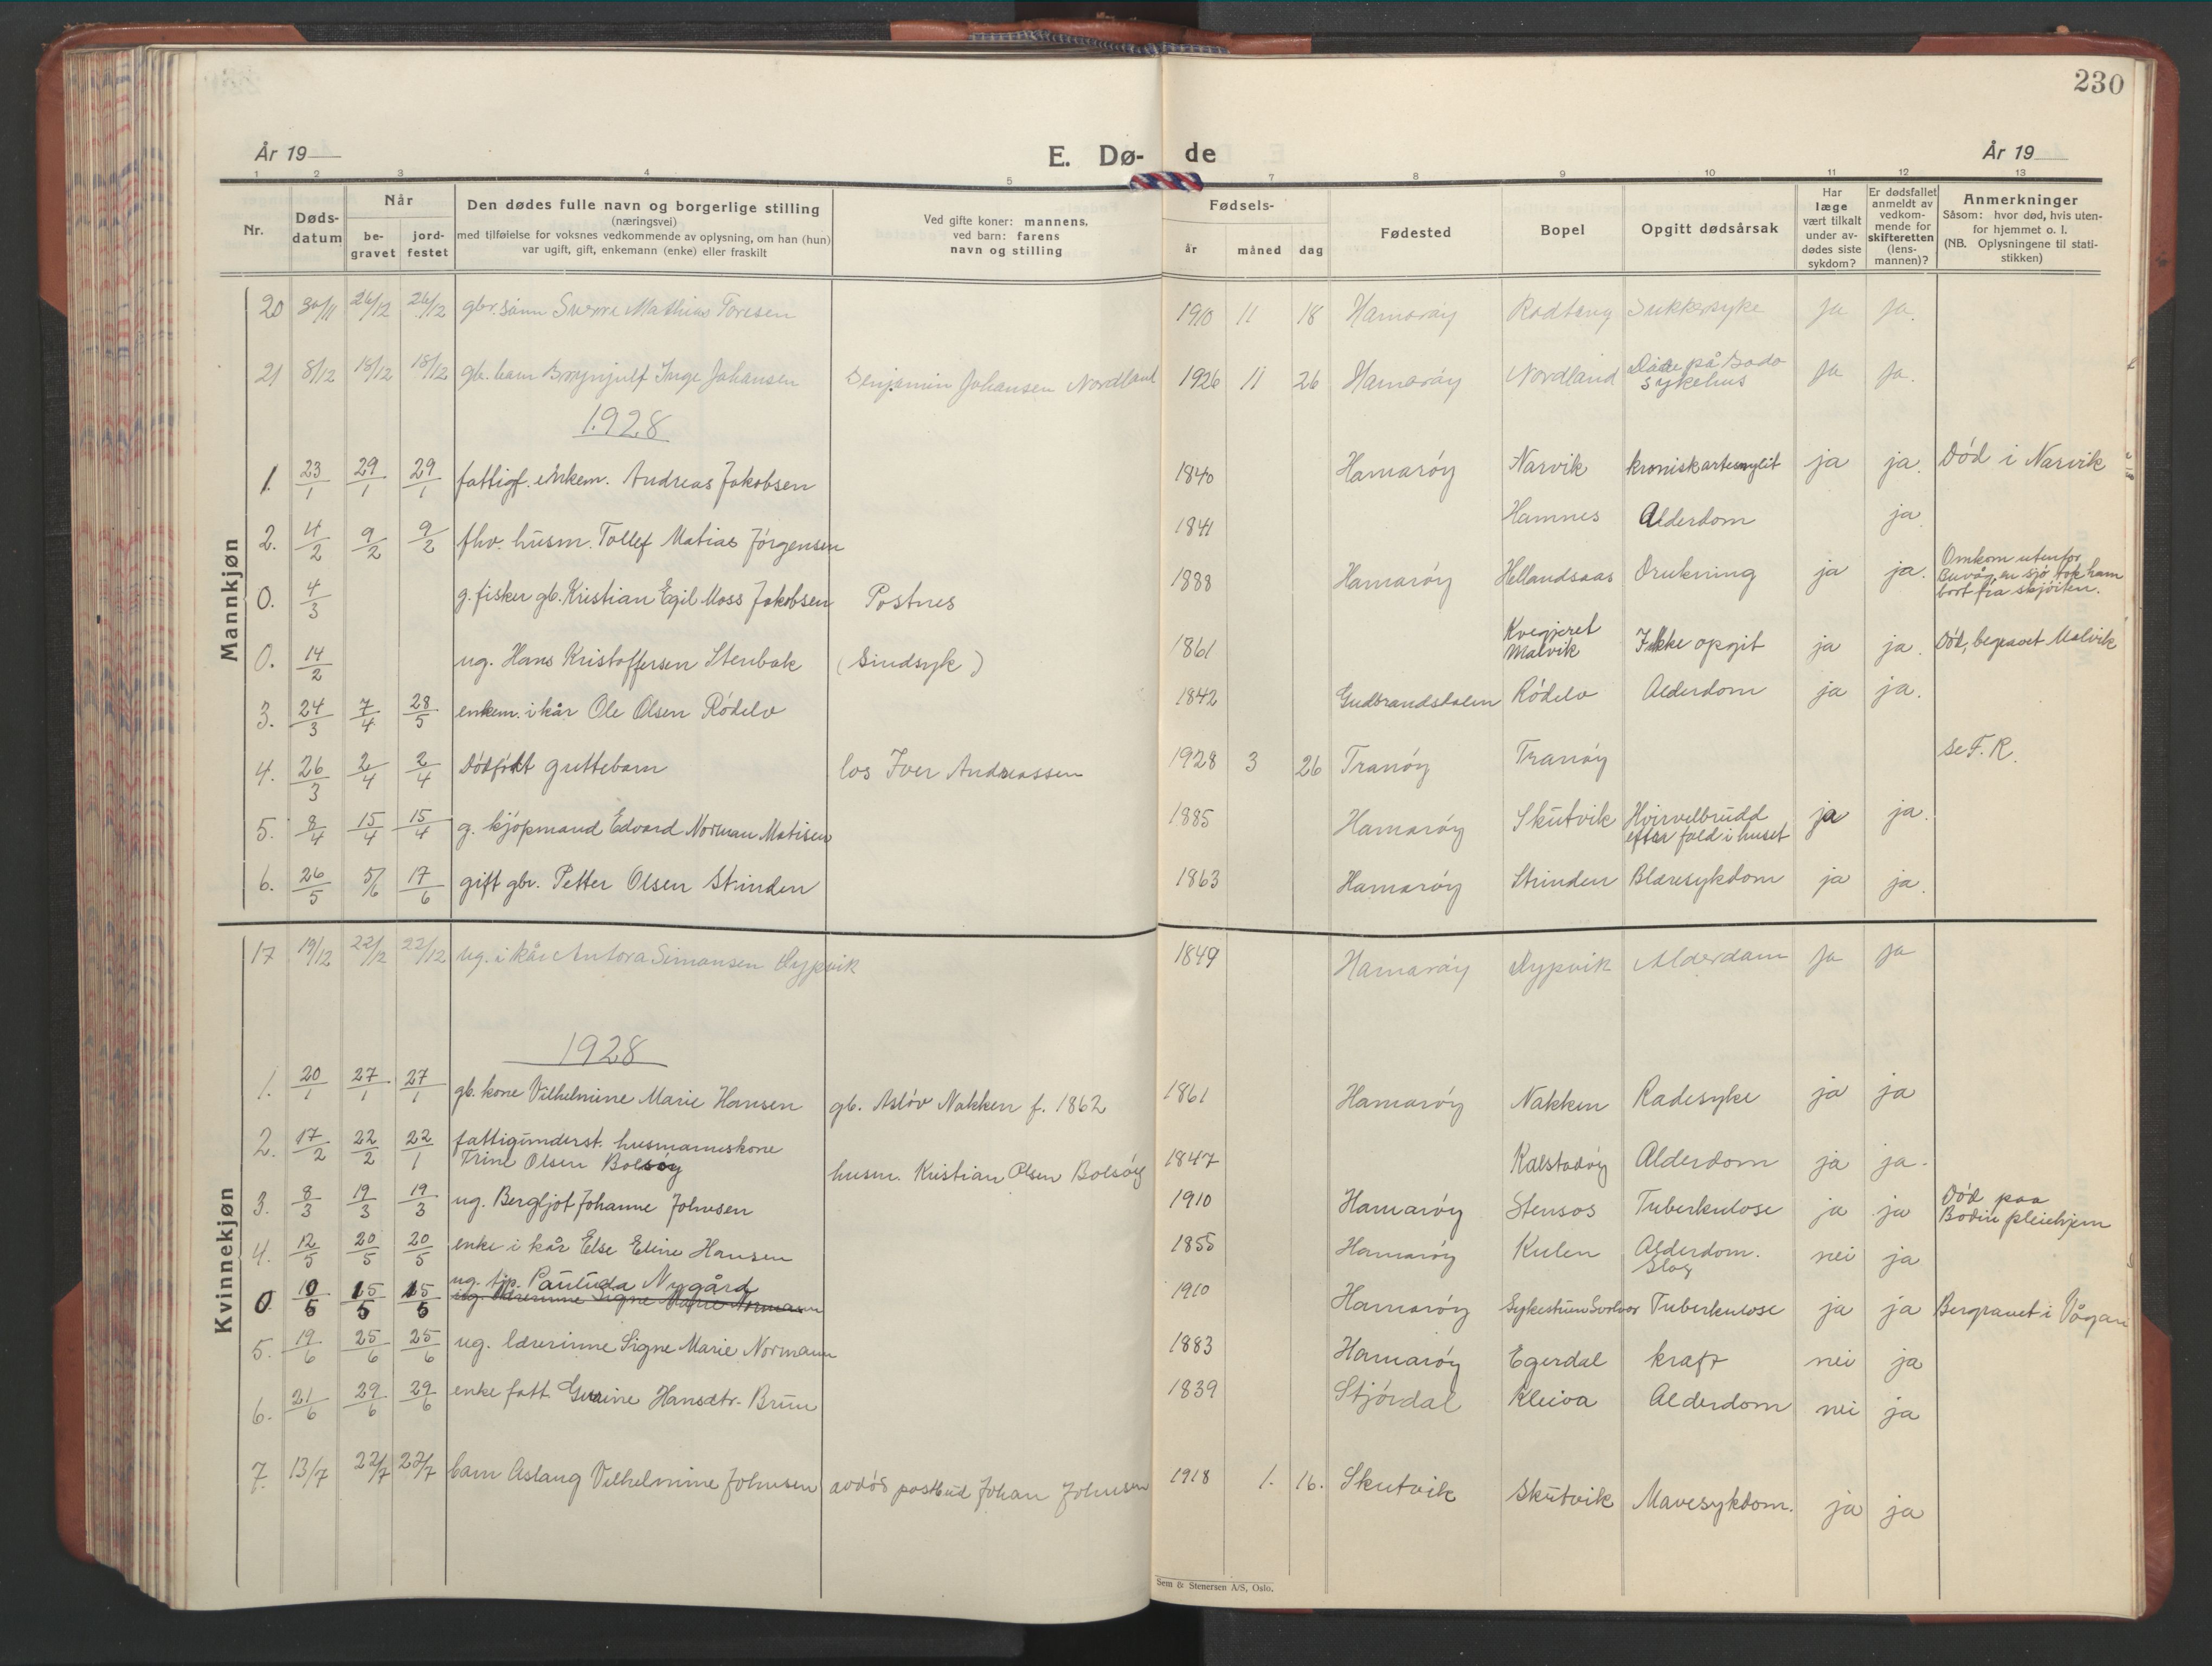 230
År 19
E. Dø-
de
År 19
1 2 3 4 5 7 8 9 10 11 12 13
Nr.
Døds-
datum
Når
be-
gravet
jord-
festet
Den dødes fulle navn og borgerlige stilling
(næringsvei)
med tilføielse for voksnes vedkommende av oplysning, om han (hun)
var ugift, gift, enkemann (enke) eller fraskilt
Ved gifte koner: mannens,
ved barn: farens
navn og stilling
Fødsels-
år måned dag
Fødested
Bopel
Opgitt dødsårsak
Har
læge
vært tilkalt
under av-
dødes siste
sykdom?
Er dødsfallet
anmeldt av
vedkom-
mende for
skifteretten
(lens-
mannen)?
Anmerkninger
Såsom: hvor død, hvis uten-
for hjemmet o. l.
(NB. Oplysningene til stati-
stikken)
Mannkjøn
20 30/11 26/12 26/12 gbr. sønn Sverre Mathias Toresen 1910 11 18 Hamarøy Rodtang Sukkersyke Ja Ja.
21 8/12 18/12 18/12 gb. barn Brynjulf Inge Johansen Benjamin Johansen Nordland 1926 11 26 Hamarøy Nordland Døde på Bodø
sykehus Ja Ja.
1928
1. 23/1 29/1 29/1 fattigf. enkem. Andreas Jakobsen 1840 Hamarøy Narvik kronisk ja ja. Död i Narvik
2. 4/2 9/2 9/2 fhv. husm. Tollef Matias Jörgensen 1841 Hamnes Alderdom ja.
0. 4/3 g. fisker gb. Kristian Egil Moss Jakobsen Postnes 1888 Hamaröy Hellandsaas Drukning ja ja. Omkom utenfor
en sjö tok ham
bort fra sköiten.
0. 14/2 ug. Hans Kristoffersen Stenbak (Sindsyk) 1861 Kvegjeret
Malvik Ikke opgit ja ja. Död, begravet Malvik
3. 24/3 7/4 28/5 enkem. i kår Ole Olsen Rödelv 1842 Gudbrandsdalen Rödelv Alderdom ja ja.
4. 26/3 2/4 2/4 Dödfödt guttebarn los Iver Andreassen 1928 3 26 Tranöy Tranöy se F. R.
5. 8/4 15/4 15/4 g. kjöpmand Edvard Norman Matisen 1885 Hamaröy Skutvik Hvirvelbrudd
efter fald i huset ja ja.
6. 26/5 5/6 17/6 gift gbr. Petter Olsen Strinden 1863 Hamaröy Strinden Blæresykdom ja ja.
Kvinnekjøn
17 19/12 22/12 22/12 ug. i kår Antora Simonsen Nypvik 1849 Hamarøy Nypvik Alderdom Ja Ja
1928
1. 20/1 27/1 27/1 gb. kone Vilhelmine Marie Hansen gb. Aslöv Nakken f. 1862 1861 Hamaröy Nakken Radesyke ja ja
2. 17/2 22/2 22/1 fattigunderst. husmannskone
Trine Olsen Bolsöy husm. Kristian Olsen Bolsöy 1847 Kalstadöy Alderdom ja ja.
3. 8/3 19/3 19/3 ug. Bergljot Johanne Johnsen 1910 Hamaröy Stensos Tuberkulose ja ja Död paa
Bodin pleiehjem
4. 12/5 20/5 20/5 enke i kår Else Eline Hansen 1855 Hamaröy Kulen Alderdom.
Slag nei ja
0 10/5 15/5 15/5 ug. tjp. Paulida Nygård
ug. lærerinne Signe Marie Normann 1910 Hamaröy Sykestuen Svolvær Tuberkulose ja ja Bergravet i Vågan
5. 19/6 25/6 25/6 ug. lærerinne Signe Marie Normann 1883 Hamaröy Egerdal kraft nei ja
6. 21/6 29/6 29/6 enke fatt. Gurine Hansdtr. Brun 1839 Stjördal Kleiva Alderdom nei ja
7. 13/7 22/7 22/7 barn Aslaug Vilhelmine Johnsen avdöd postbud Johan Johnsen 1918 1. 16. Skutvik Skutvik Mavesykdom. ja ja
Sem & Stenersen A/S, Oslo.